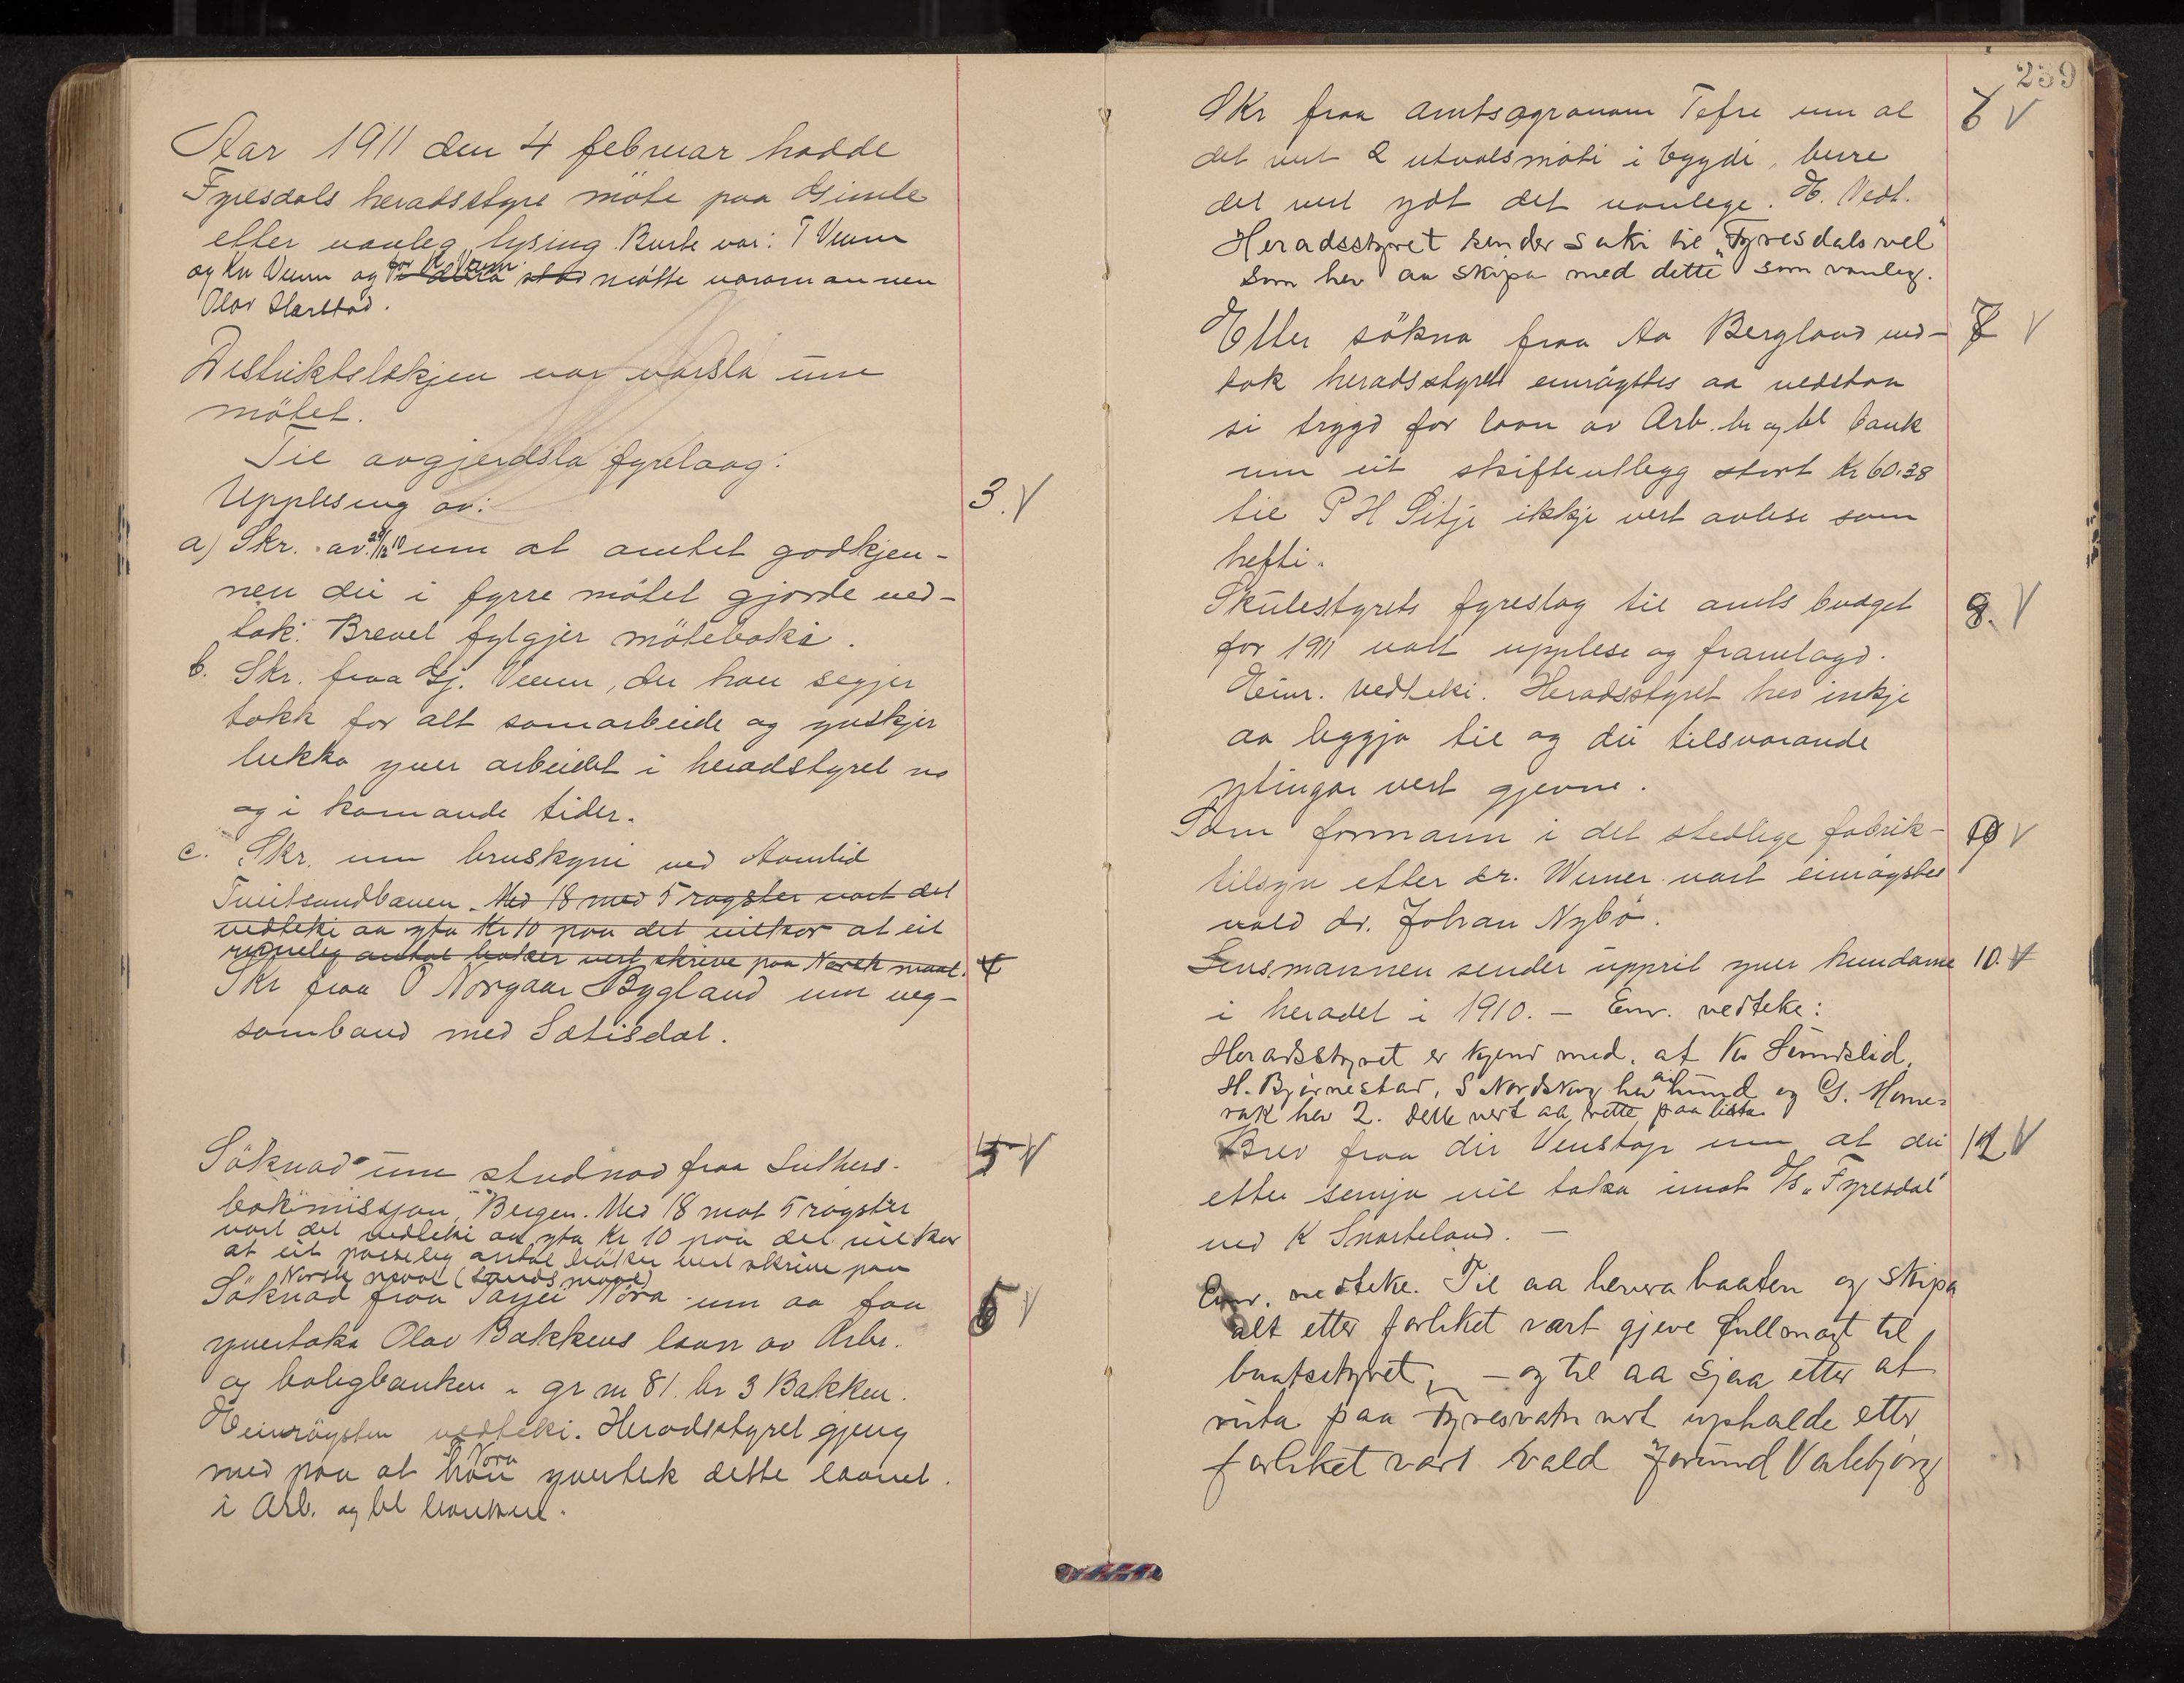 Aar 1911 den 4 februar hadde
Fyresdals heradsstyre möte paa Gimle
etter vanleg lysing. Burte var: T Veum
og Kn Veum og for K. Veum møtte varamannen
Olav Harstad.
Distriktslækjen var varsla um
mötet.
Til avgjerdsla fyrelaag:
Upplesing av: 3. V
a) Skr. av 29/12 10 um at amtet godkjen-
nen dei i fyrre mötet gjorde ved-
tak. Brevet fylgjer møteboki.
b. Skr. fraa Gj. Veum, der han segjer
takk for alt samarbeide og ynskjer
lukka yver arbeidet i heradstyret no
og i komande tider.
c. Skr. um bruskyni ved Aamlid
Tveitsundbanen. Med 18 mod 5 røyster vart det
vedteki aa yta Kr 10 paa det vilkor at eit
rimeleg antal bøker vert skrive paa Norsk maal.
Skr fraa O Norgaar Bygland um veg- 4
samband med Sætisdal.
Söknad um studnad fraa Luthers- 5 V
bokmissjon, Bergen. Med 18 mot 5 røyster
vart det vedteki aa yta Kr 10 paa det vilkor
at eit passeleg antal bøker vert skrive paa
Norsk maal (Landsmaal)
Söknad fraa Tarjei Nöra um aa faa 6 V
yvertaka Olav Bakkens laan av Arbr.
og boligbanken - gr nr 81. br 3 Bakken.
Einröysten vedteki. Heradsstyret gjeng
med paa at T Nora yvertek dette laanet
i Arb. og bl banken.
239
Skr fraa amtsagronom Tefre um at 6 V
det vert 2 utvalsmöti i bygdi, berre
det vert ydt det vanlege. E. Vedt.
Heradsstyret sender saki til "Fyresdals vel"
som hev aa skipa med dette som vanleg.
Etter sökna fraa Aa Bergland ved- 7 V
tok heradsstyret einröystes aa vedstaa
si trygd for laan av Arb. br og bl bank
um eit skifteutlegg stort Kr 60.38
til P H Sitje ikkje vert avlese som
hefti.
Skulestyrets fyreslag til amts budget 8. V
for 1911 vart upplese og framlagd.
Einr. vedteki. Heradsstyret hev inkje
aa leggja til og dei tilsvarande
ytingar vert gjevne.
Som formann i det stedlige fabrik- 9 V
tilsyn etter dr. Werner vart einröystes
vald dr. Johan Nybö.
Lensmannen sender upprit yver hundarne 10. V
i heradet i 1910. - Enr. vedteke:
Heradsstyret er kjend med, at Kn Sundslid,
H. Björnestad, S Nordskog hev ein hund og G. Mome-
rak hev 2. Dette vert aa rette paa lista.
Brev fraa dir Venstøp um at dei 11 V
etter semja vil taka imot D/S "Fyresdal"
ved K Snarteland. -
Einr. vedteke. Til aa levera baaten og skipa
alt etter forliket vart gjeve fullmagt til
baatstyret, - og til aa sjaa etter at
ruta paa Fyresvatn vert uphalde etter
forliket vart vald Jorund Veslebjorg